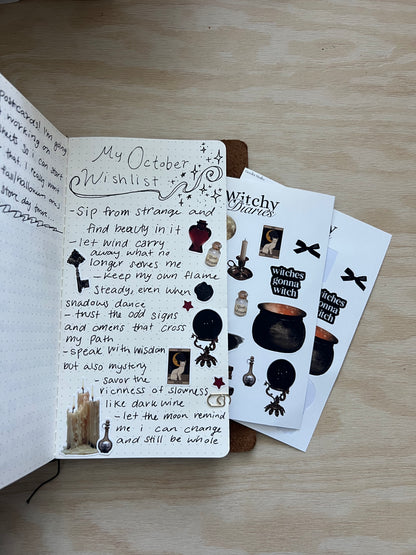 postcards! I'm going
working on
sheets so I can start
that I really want
tas/Halloween ones
store day true
My October
Wishlist
- Sip from strange and
find beauty in it
- let wind carry
away what no
longer serves me
- keep my own flame
steady, even when
shadows dance
- trust the odd signs
and omens that cross
my path
- speak with wisdom
but also mystery
- savor the
richness of slowness
like dark wine
- let the moon remind
me i can change
and still be whole
Witchy
Diaries
witches
gonna
witch
Witchy
Diaries
witches
gonna
witch